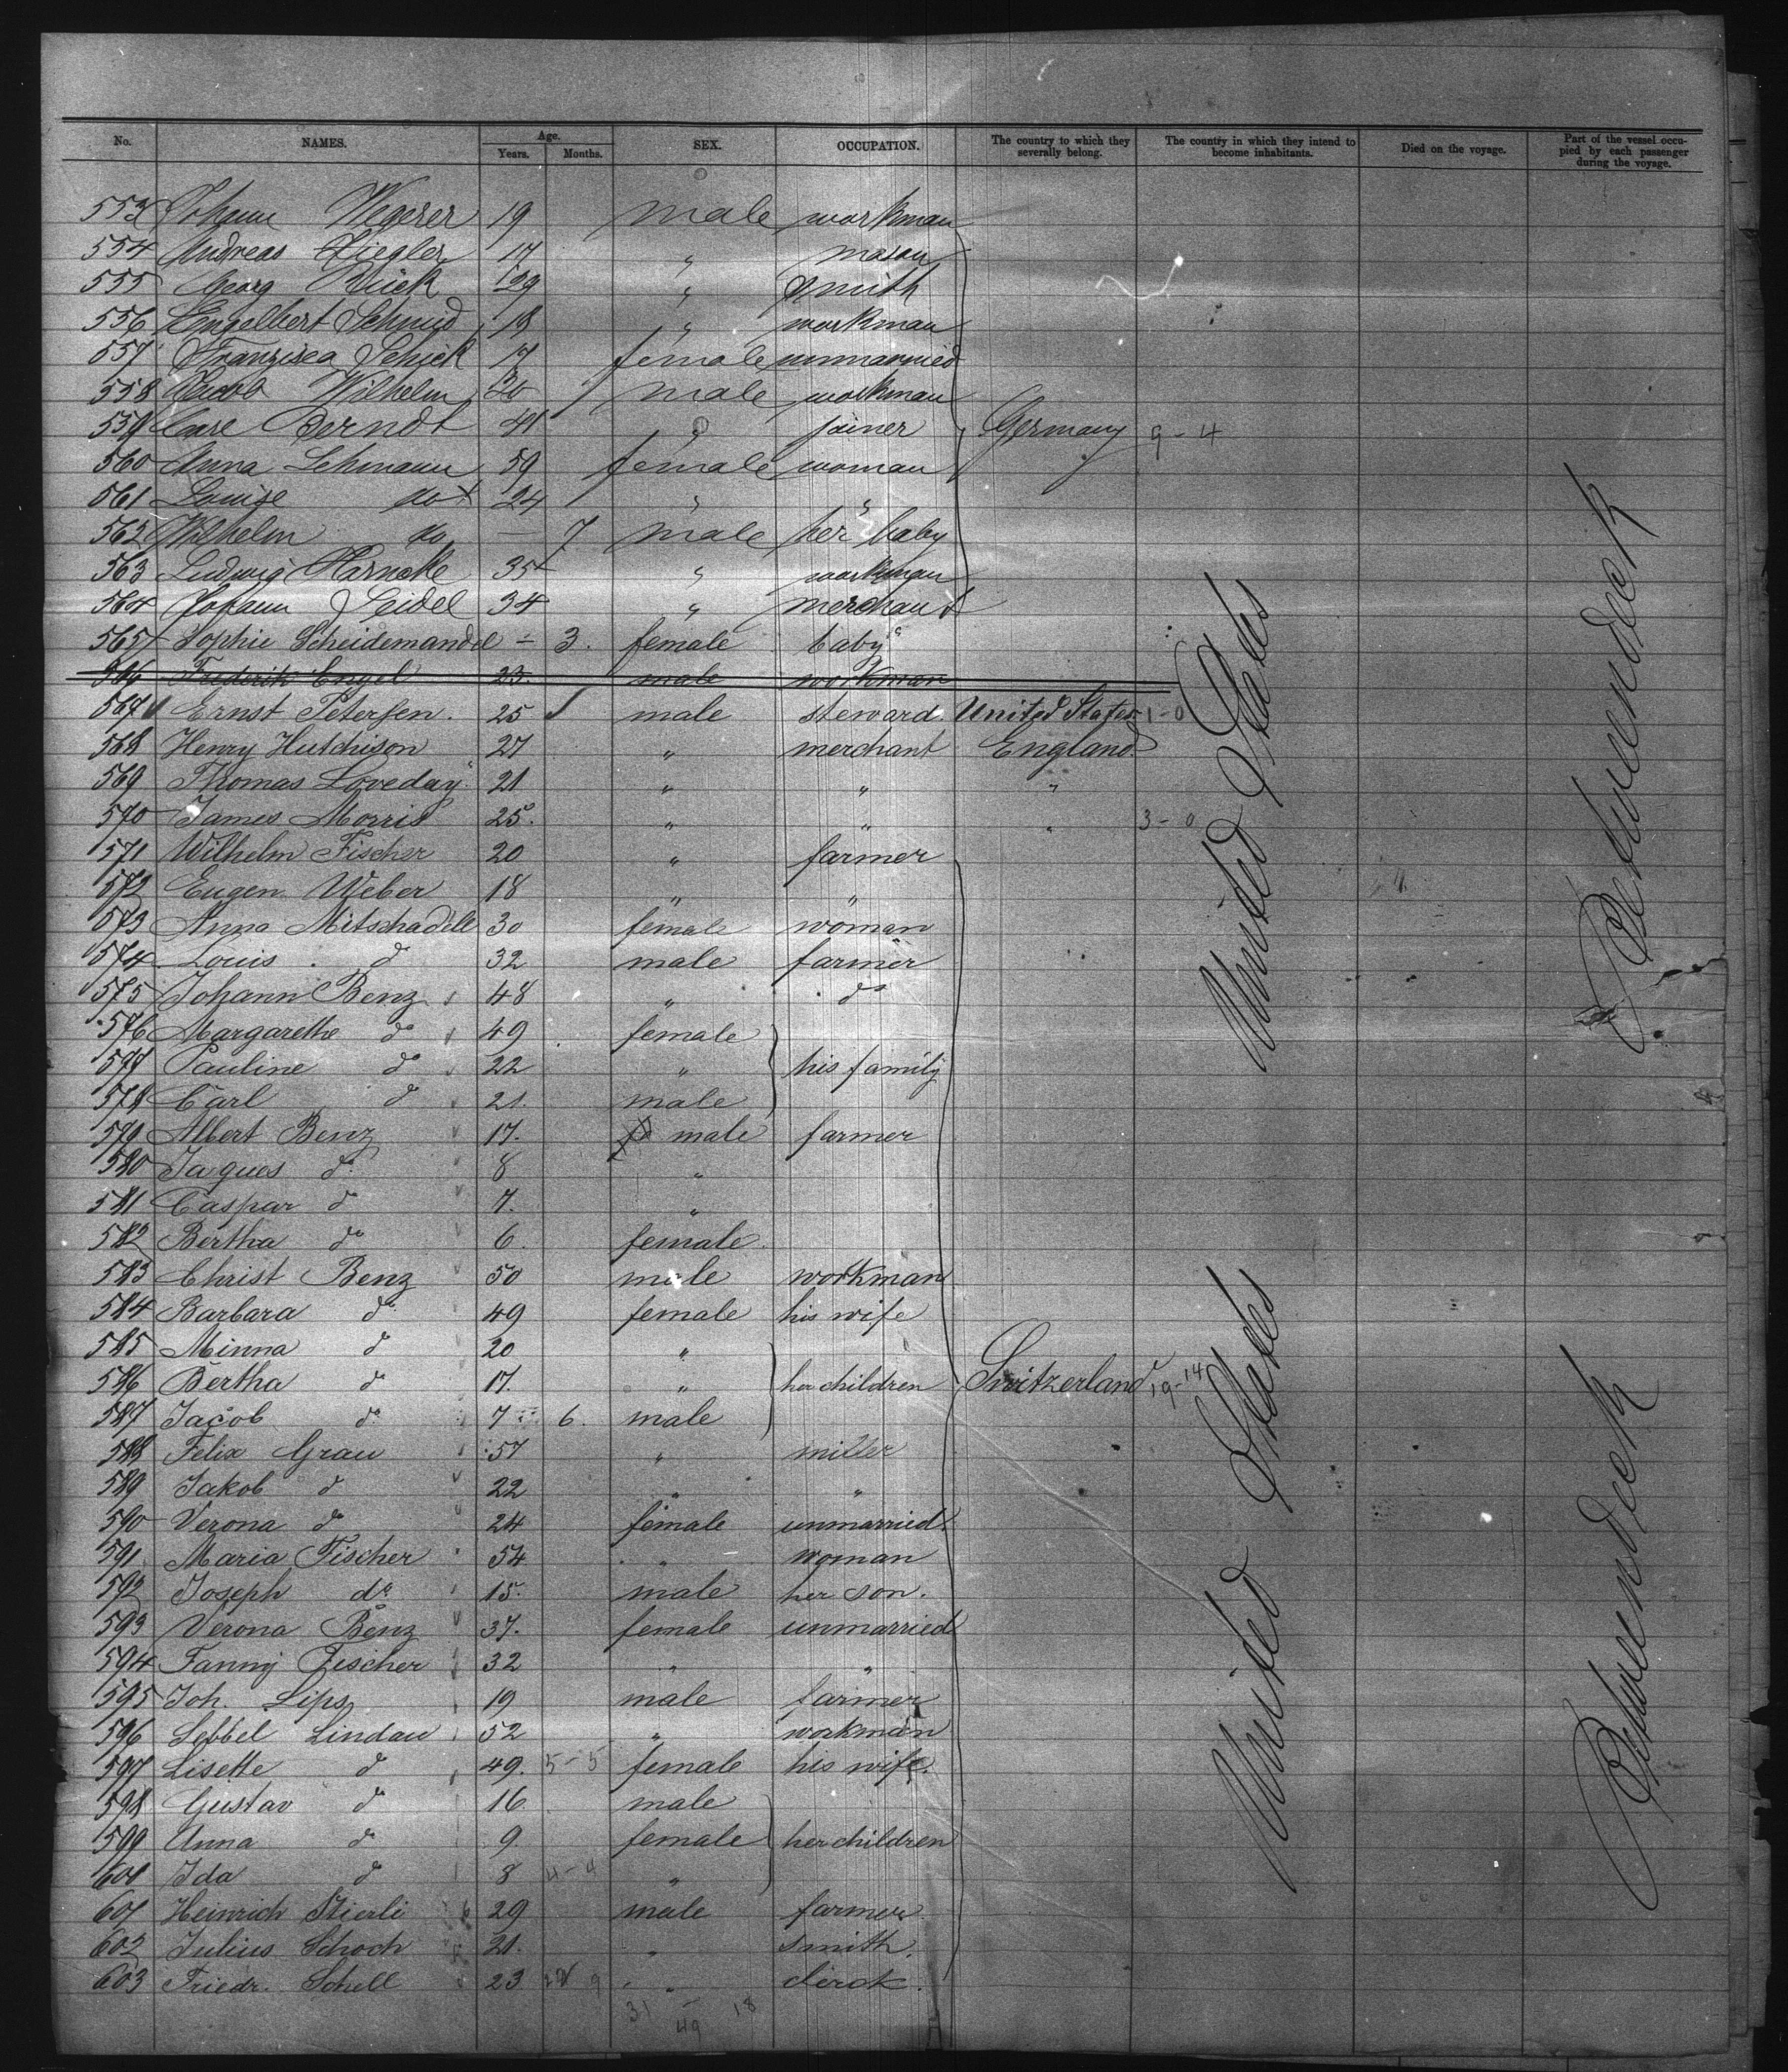 No. NAMES. Age. Years. Months. SEX. OCCUPATION. The country to which they severally belong. The country in which they intend to become inhabitants. Died on the voyage. Part of the vessel occupied by each passenger during the voyage.
553 Johann Wegerer 19 male workman
554 Andreas Ziegler 17 " mason
555 Georg Rück 29 " smith
556 Engelbert Schmid 18 " workman
557 Franzisca Schick 17 female unmarried
558 Jacob Wilhelm 30 male workman
559 Carl Berndt 41 " joiner Germany 9-4
560 Anna Lehmann 59 female woman
561 Louise do 24 " "
562 Wilhelm do — 7 male her baby
563 Ludwig Harneke 35 " workman
564 Johann Seidel 34 " merchant
565 Sophie Scheidemandel - 3. female baby
566 Frederik Engel 23. male workman
567 Ernst Petersen. 25 male steward. United States 1-0
568 Henry Hutchison 27 " merchant England
569 Thomas Loveday 21 " " "
570 James Morris 25. " " " 3-0
571 Wilhelm Fischer 20 " farmer
572 Eugen Weber 18 " "
573 Anna Mitschadële 30 female woman
574 Louis do 32 male farmer
575 Johann Benz 48 " do
576 Margarethe do 49 female
577 Pauline do 22 " his family
578 Carl do 21. male
579 Albert Benz 17. male farmer
580 Jaques do 8 "
581 Caspar do 7. "
582 Bertha do 6. female.
583 Christ Benz 50 male workman
584 Barbara do 49 female his wife
585 Minna do 20 "
586 Bertha do 17. " her children Switzerland 19-14
587 Jacob do 7 6. male
588 Felix Grau 57 " miller
589 Jakob do 22 " "
590 Verona do 24 female unmarried
591 Maria Fischer 54 " woman
592 Joseph do 15. male her son.
593 Verona Benz 37. female unmarried
594 Fanny Fischer 32 " "
595 Joh. Lips 19 male farmer
596 Seppel Lindau 52 " workman
597 Lisette do 49. 5-5 female his wife.
598 Gustav do 16 male
599 Anna do 9 female her children
600 Ida do 8 4-4 "
601 Heinrich Stierli 29 male farmer
602 Julius Schoch 21. " smith.
603 Friedr. Schell 23 9 " clerck.
31 - 18
49
United States
United States
Betweendeck
Betweendeck